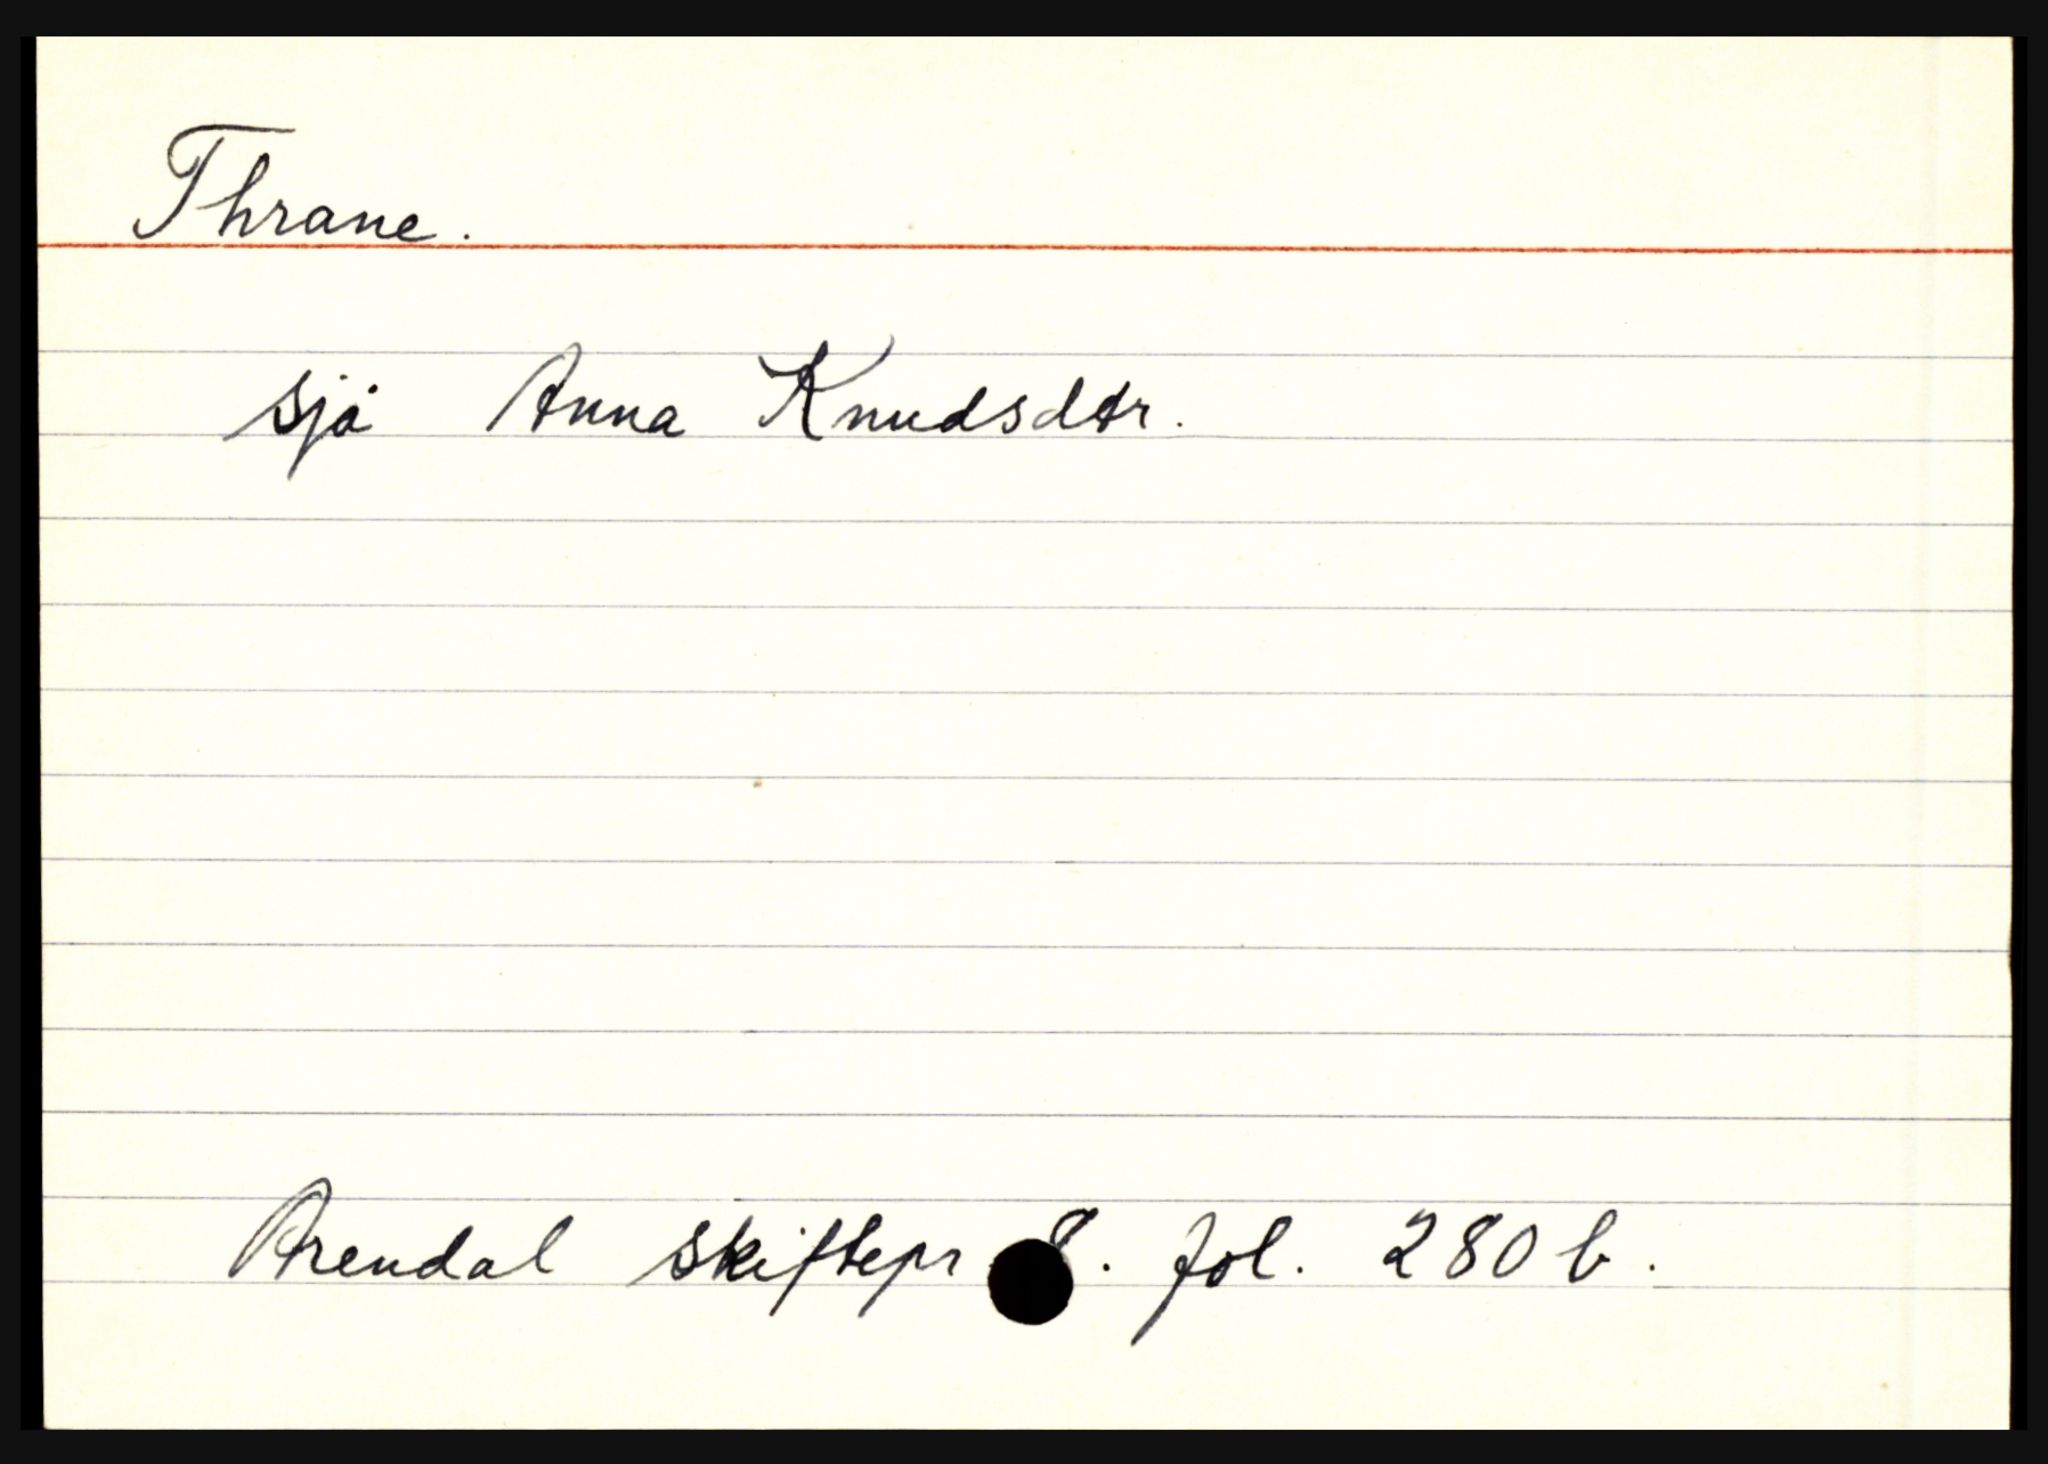 Thrane.
sjå Anna Knudsdtr.
Arendal skiftepr 8. fol. 280 b.